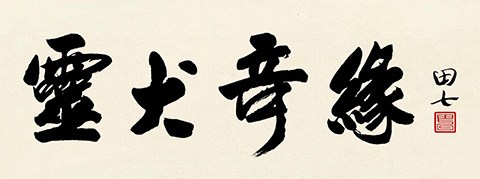 靈犬奇緣
田七